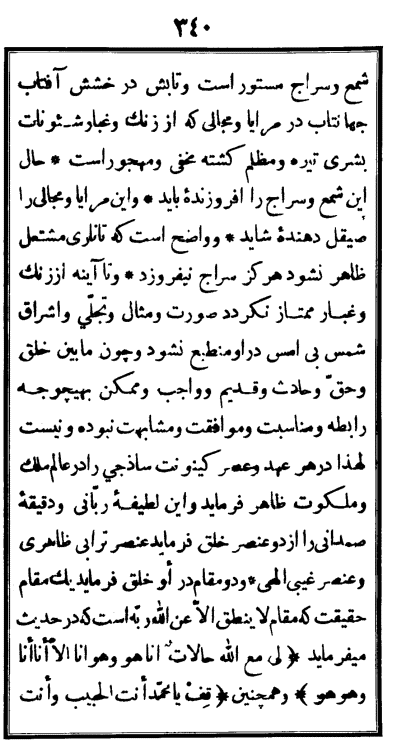 ٣٤٠
شمع وسراج مستور است وتابش در خشش آفتاب
جهانتاب در مرایا ومجالی که از زنك وغبار شـئونات
بشری تیره ومظلم کشته مخفی ومهجور است * حال
این شمع وسراج را افروزندهٔ باید * واین مرایا ومجالی را
صیقل دهندهٔ شاید * وواضح است که تا ناری مشتعل
ظاهر نشود هرکز سراج نیفروزد * وتا آینه از زنك
وغبـار ممتـاز نکردد صورت ومثال وتجلّي واشراق
شمس بی امس در او منطبع نشود وچون ما بین خلق
وحقّ وحادث وقـدیم وواجب وممکن بهیچوجـه
رابطه ومناسبت وموافقت ومشابهت نبوده ونیست
لهذا در هر عهد وعصر کینونت ساذجي را در عالم ملك
وملکوت ظاهر فرماید واین لطیفـهٔ ربّانی ودقیقهٔ
صمدانی را از دو عنصر خلق فرماید عنصر ترابی ظاهری
وعنصر غیبی الهی * ودو مقام در او خلق فرماید یك مقام
حقیقت که مقام لا ینطق الاّ عن الله ربّه است که در حدیث
میفرماید ﴿ لی مع الله حالات انا هو وهو انا الاّ أنا أنا
وهو هو ﴾ وهمچنین ﴿ قِفْ یا محمّد أنت الحبیب وأنت